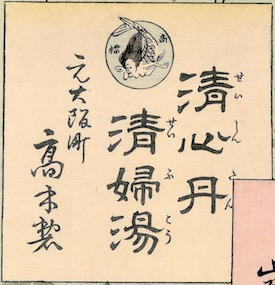 商標
清心丹
せいしんたん
清婦湯
せいふとう
元大阪町
高木製